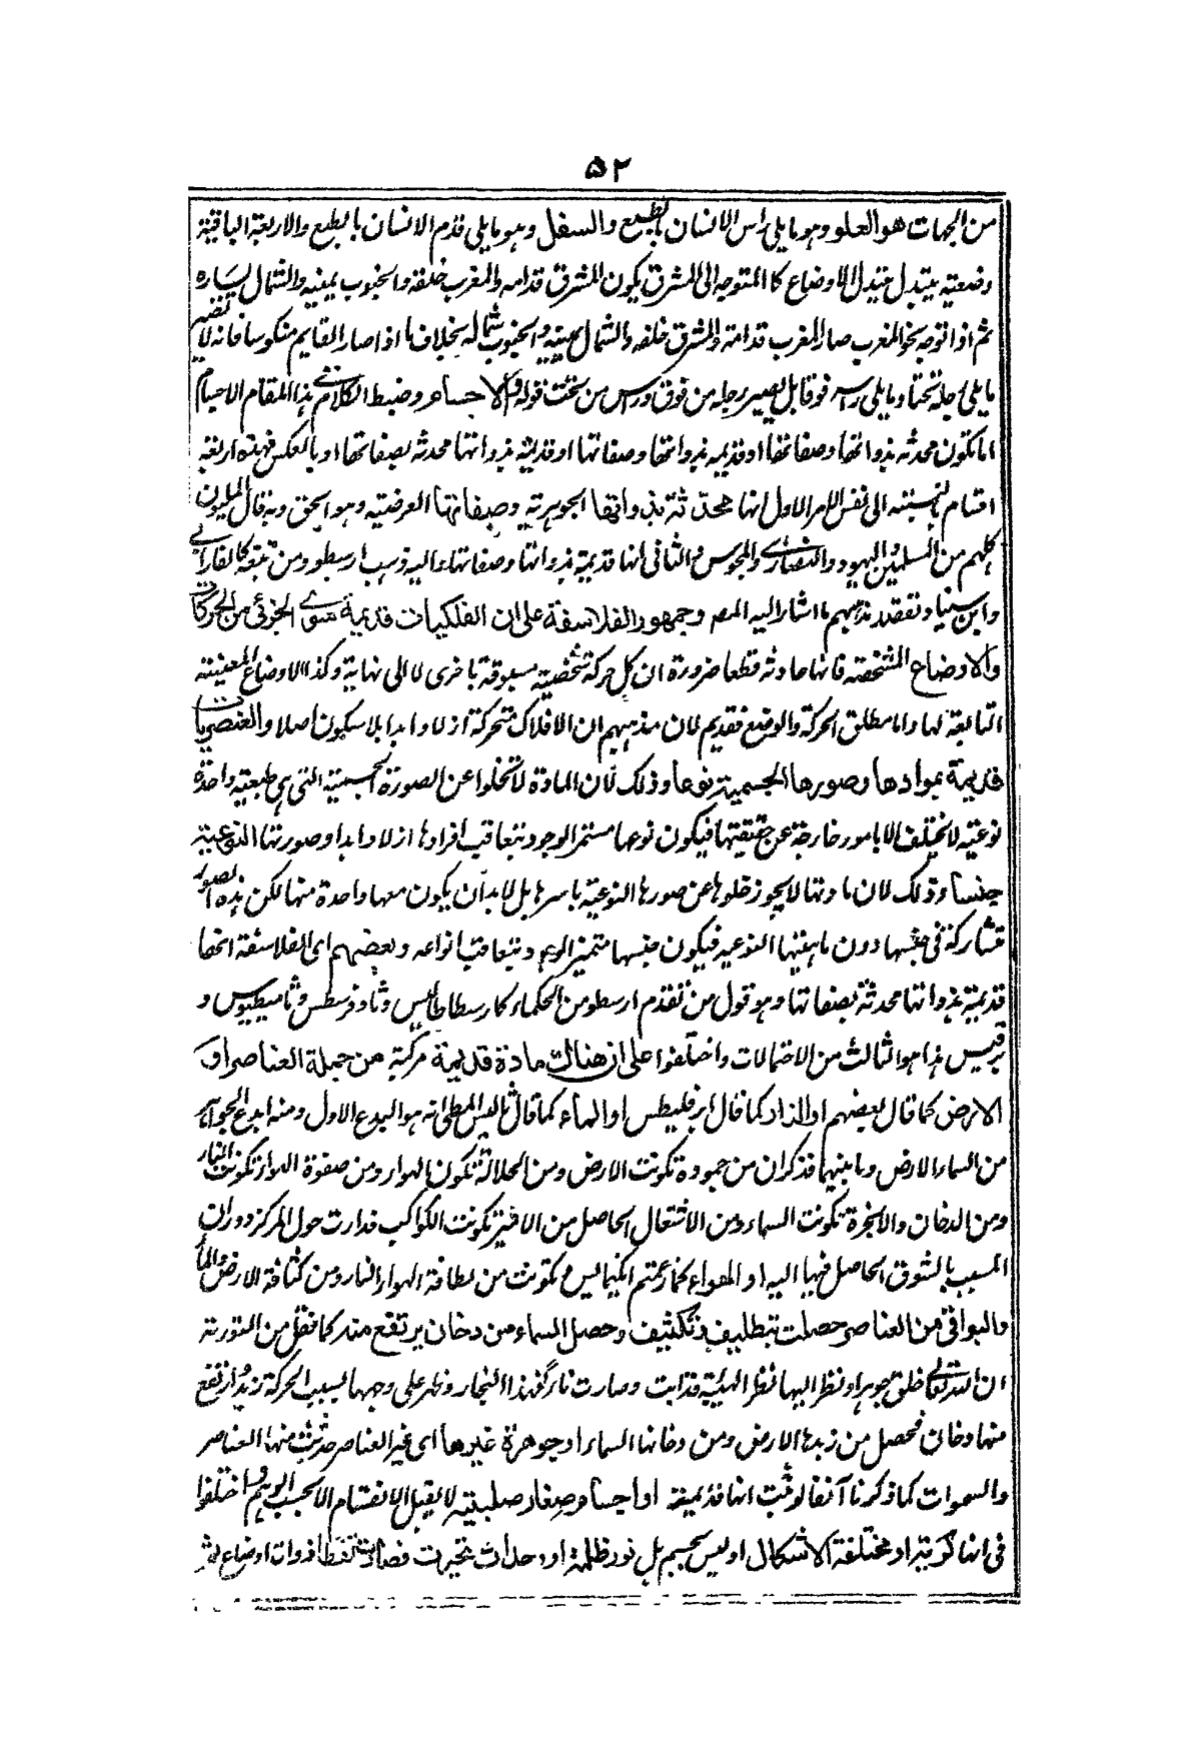 ۵۲
من الجهات هو العلو وهو ما يلي راس الانسان بالطبع والسفل وهو ما يلي قدم الانسان بالطبع والاربعة الباقية
وضعية يتبدل بتبدل الاوضاع كالمتوجه الى المشرق يكون المشرق قدامه والمغرب خلفه والجنوب يمينه والشمال يساره
ثم اذا توجه نحو المغرب صار المغرب قدامه والمشرق خلفه والشمال يمينه والجنوب شماله بخلاف ما اذا صار القايم منكوسا فانه لا يصير
ما يلي رجله تحتا وما يلي راسه فوقا بل يصير رجله من فوق وراسه من تحت قوله والاجسام وضبط الكلام في هذا المقام الاجسام
اما تكون محدثة بذواتها وصفاتها او قديمة بذواتها وصفاتها او قديمة بذواتها محدثة بصفاتها او بالعكس فهذه اربعة
اقسام بالنسبة الى نفس الامر الاول انها محدثة بذواتها الجوهرية وصفاتها العرضية وهو الحق وبه قال المليون
كلهم من المسلمين واليهود والنصارى والمجوس والثاني انها قديمة بذواتها وصفاتها واليه ذهب ارسطو ومن تبعه كالفارابي
وابن سينا وتفصيل مذهبهم ما اشار اليه المص وجمهور الفلاسفة على ان الفلكيات قديمة سوى الجزئي من الحركات
والاوضاع المشخصة فانها حادثة قطعا ضرورة ان كل حركة شخصية مسبوقة باخرى لا الى نهاية وكذا الاوضاع المعينة
التابعة لها واما مطلق الحركة والوضع فقديم لان مذهبهم ان الافلاك متحركة ازلا وابدا بلا سكون اصلا والعنصريات
قديمة بموادها وصورها الجسمية نوعا وذلك لان المادة لا تخلوا عن الصورة الجسمية التي هي طبيعة واحدة
نوعية لا تختلف الا بامور خارجة عن حقيقتها فيكون نوعها مستمر الوجود بتعاقب افرادها ازلا وابدا وصورتها النوعية
جنسا وذلك لان مادتها لا يجوز خلوها عن صورها النوعية باسرها بل لا بد ان يكون معها واحدة منها لكن هذه الصور
متشاركة في جنسها دون ماهيتها النوعية فيكون جنسها مستمر الوجود بتعاقب انواعه وبعضهم اى الفلاسفة انها
قديمة بذواتها محدثة بصفاتها وهو قول من تقدم ارسطو من الحكماء وثاوفرسطس وثامسطيوس و
برقلس هذا هو الثالث من الاحتمالات واختلفوا على ان هناك مادة قديمة مركبة من جملة العناصر او
الارض كما قال بعضهم او النار كما قال ابرقليطس او الماء كما قال ثاليس الملطي انه هو المبدع الاول ومنه ابدع الجواهر
من السماء والارض وما بينهما فذكر ان من جموده تكونت الارض ومن انحلاله تكون الهواء ومن صفوة الهواء تكونت النار
ومن الدخان والابخرة تكونت السماء ومن الاشتعال الحاصل من الاثير تكونت الكواكب فدارت حول المركز دوران
المسبب بالشوق الحاصل فيها اليه او الهواء كما زعم انكسيمايس وتكونت من لطافة الهواء النار ومن كثافته الارض والماء
والبواقي من العناصر حصلت بتلطيف وتكثيف وحصل السماء من دخان يرتفع منه كما نقل من التورية
ان الله تعالى خلق جوهرا ونظر اليها نظر الهيبة فذابت وصارت ماء ثم ارتفع منها البخار وظهر على وجهها بسبب الحركة زبد وارتفع
منها دخان فحصل من زبدها الارض ومن دخانها السماء او جوهرة غيرها اى غير العناصر حدثت منها العناصر
والسموات كما ذكرنا آنفا لو ثبت انها قديمة او اجسام صغار صلبية لا يقبل الانقسام الا بحسب الوهم واختلفوا
في انها كروية او مختلفة الاشكال او ليس بجسم بل نور وظلمة او وحدات تحيزت فصارت نقطا ذوات اوضاع